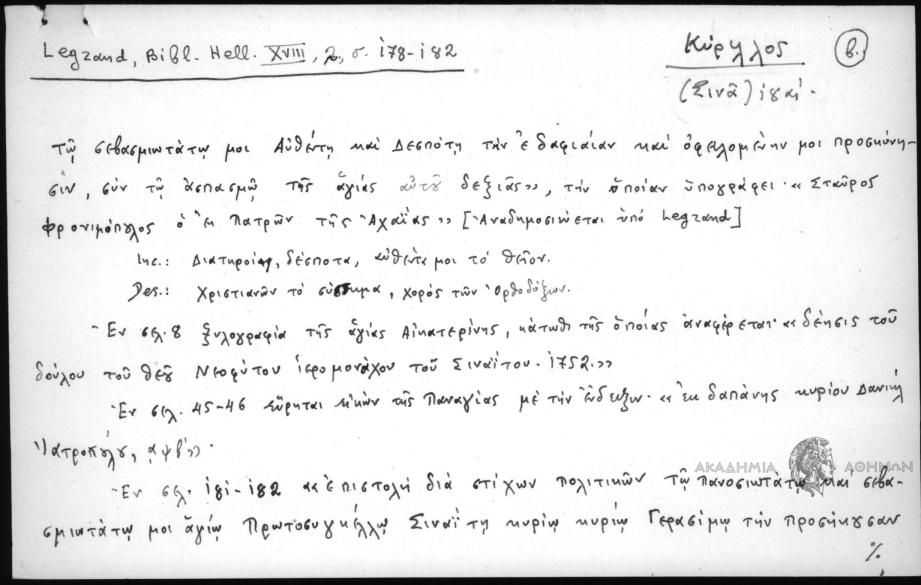 Legrand, Bibl. Hell. XVIII, 2, σ. 178-182
Κύριλλος
β.
(Σινᾶ)
τῷ σεβασμιωτάτῳ μοι Αὐθέντῃ καὶ Δεσπότῃ τὴν ἐδαφιαίαν καὶ ὀφειλομένην μοι προσκύνη-
σιν, σὺν τῷ ἀσπασμῷ τῆς ἁγίας αὐτοῦ δεξιᾶς», τὴν ὁποίαν ὑπογράφει· « Σταῦρος
Φρονιμόπυλος ὁ ἐκ Πατρῶν τῆς Ἀχαΐας» [Ἀναδημοσιεύεται ὑπὸ Legrand]
Inc.: Διατηροίη, δέσποτα, αὐθέντα μοι τὸ θεῖον.
Des.: Χριστιανῶν τὸ σύστημα, χορὸς τῶν Ὀρθοδόξων.
Ἐν σελ. 8 ξυλογραφία τῆς ἁγίας Αἰκατερίνης, κάτωθι τῆς ὁποίας ἀναφέρεται· «δέησις τοῦ
δούλου τοῦ Θεοῦ Νεοφύτου ἱερομονάχου τοῦ Σιναΐτου. 1752.»
Ἐν σελ. 45-46 εὕρηται εἰκὼν τῆς Παναγίας μὲ τὴν ἔνδειξιν· «ἐκ δαπάνης κυρίου Δανιὴλ
Ἰατροπύλου, αψβ'».
Ἐν σελ. 181-182 «ἐπιστολὴ διὰ στίχων πολιτικῶν τῷ πανοσιωτάτῳ καὶ σεβα-
σμιωτάτῳ μοι ἁγίῳ Πρωτοσυγκέλλῳ Σιναΐτῃ κυρίῳ κυρίῳ Γερασίμῳ τὴν προσήκουσαν
%
ΑΚΑΔΗΜΙΑ ΑΘΗΝΩΝ